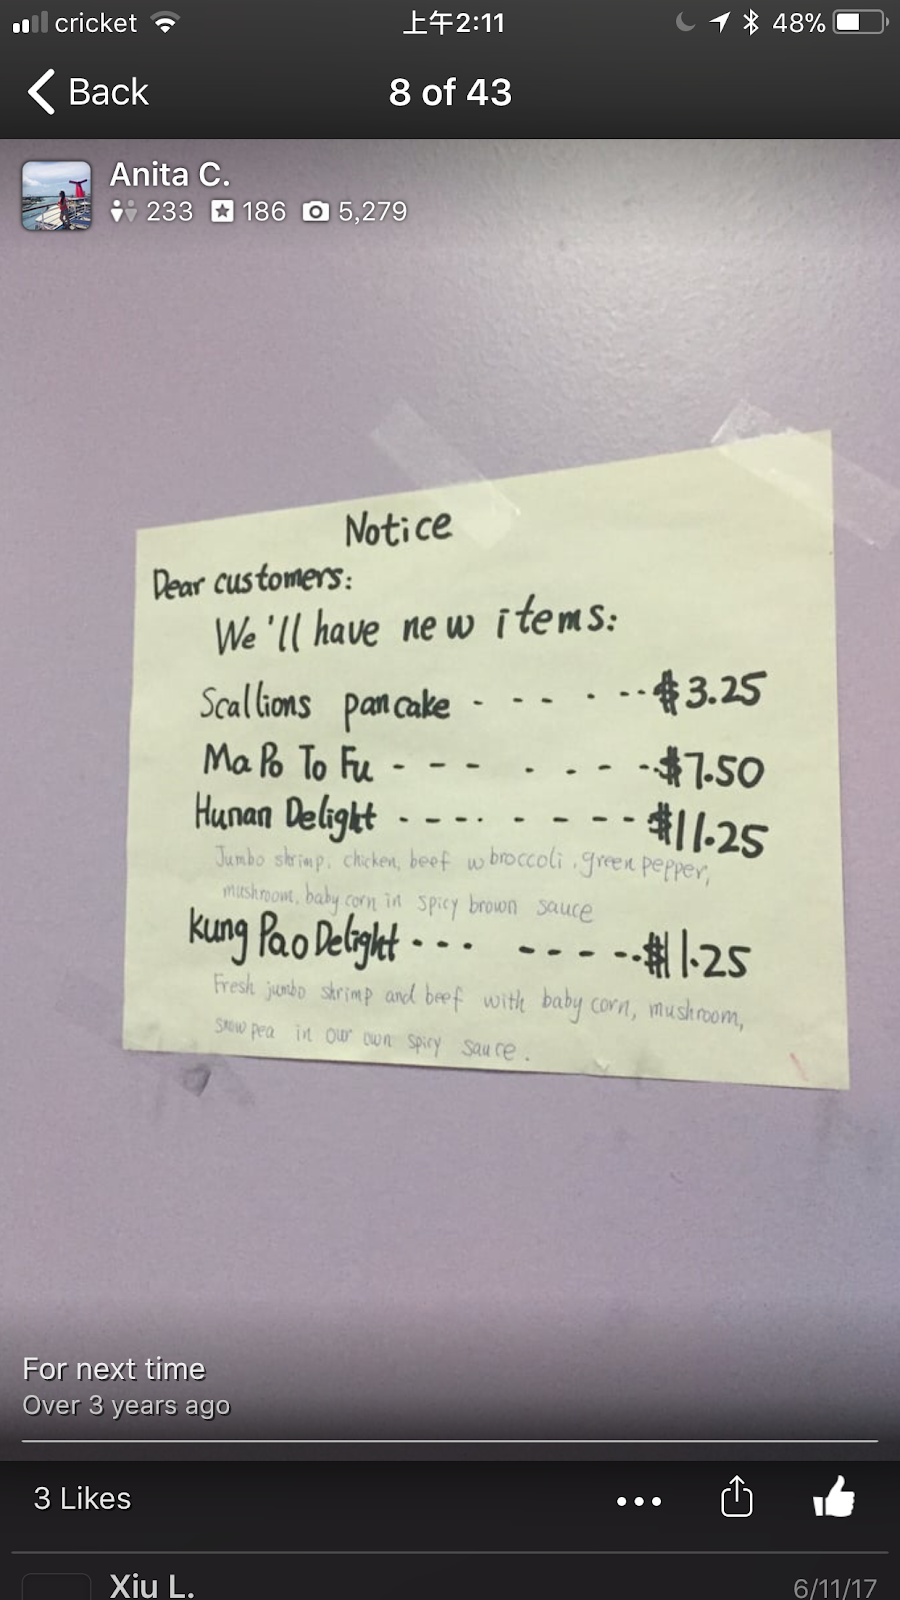 cricket 上午2:11 48%
Back 8 of 43
Anita C.
233 186 5,279
Notice
Dear customers:
We'll have new items:
Scallions pancake - - - - - - - $3.25
Ma Po To Fu - - - - - - - - $7.50
Hunan Delight - - - - - - - - - $11.25
Jumbo shrimp, chicken, beef w broccoli, green pepper,
mushroom, baby corn in spicy brown sauce
Kung Pao Delight - - - - - - - - - $11.25
Fresh jumbo shrimp and beef with baby corn, mushroom,
snow pea in our own spicy sauce.
For next time
Over 3 years ago
3 Likes
Xiu L. 6/11/17